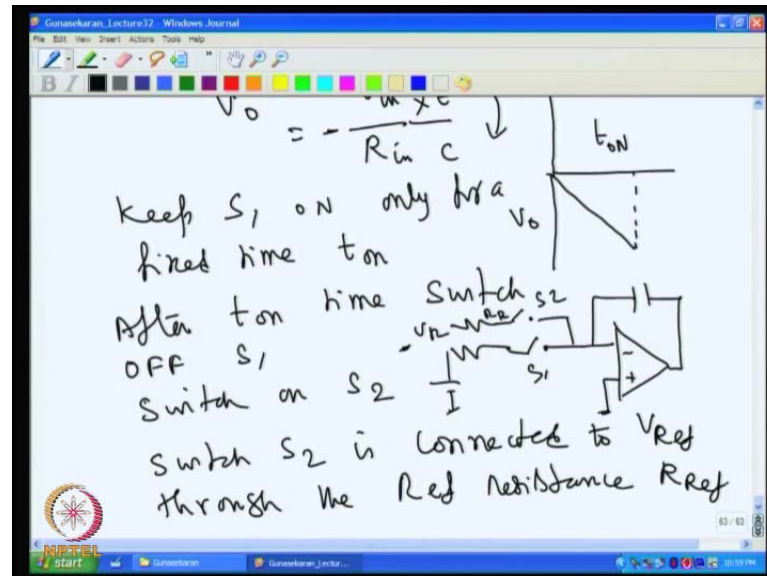 Gunasekaran_Lecture32 - Windows Journal
File Edit View Insert Actions Tools Help
B I
V0 = - Vin x t / Rin C
ton
V0
Keep S1 ON only for a
fixed time ton
After ton time Switch
OFF S1
Switch on S2
S2
-VR RR
S1
I
- +
Switch S2 is connected to VRef
through the Ref resistance RRef
63 / 63
NPTEL
start Gunasekaran Gunasekaran_Lectur... 10:59 PM